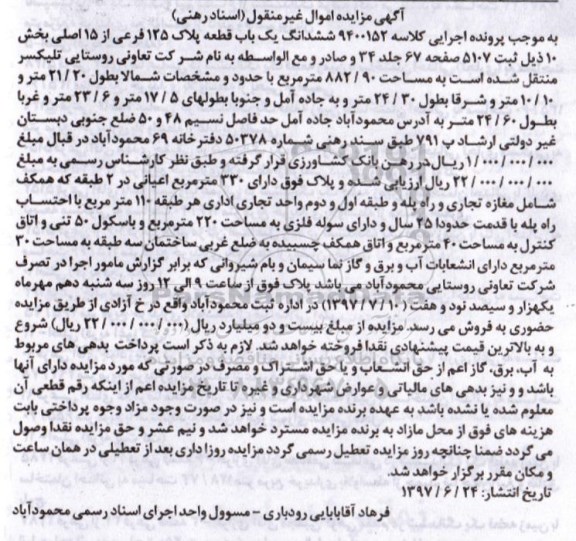 آگهی مزایده اموال غیرمنقول (اسناد رهنی)
به موجب پرونده اجرایی کلاسه ۹۴۰۰۱۵۲ ششدانگ یک باب قطعه پلاک ۱۲۵ فرعی از ۱۵ اصلی بخش
۱۰ ذیل ثبت ۵۱۰۷ صفحه ۶۷ جلد ۳۴ و صادر و مع الواسطه به نام شرکت تعاونی روستایی تلیکسر
منتقل شده است به مساحت ۹۰ / ۸۸۲ مترمربع با حدود و مشخصات شمالا بطول ۲۰ / ۲۱ متر و
۱۰ / ۱۰ متر و شرقا بطول ۳۰ / ۲۴ متر و به جاده آمل و جنوبا بطولهای ۵ / ۱۷ متر و ۶ / ۲۳ متر و غربا
بطول ۶۰ / ۲۴ متر به آدرس محمودآباد جاده آمل حد فاصل نسیم ۴۸ و ۵۰ ضلع جنوبی دبستان
غیر دولتی ارشاد پ ۷۹۱ طبق سند رهنی شماره ۵۰۳۷۸ دفترخانه ۶۹ محمودآباد در قبال مبلغ
۱/۰۰۰/۰۰۰/۰۰۰ ریال در رهن بانک کشاورزی قرار گرفته و طبق نظر کارشناس رسمی به مبلغ
۲۲/۰۰۰/۰۰۰/۰۰۰ ریال ارزیابی شده و پلاک فوق دارای ۳۳۰ مترمربع اعیانی در ۲ طبقه که همکف
شامل مغازه تجاری و راه پله و طبقه اول و دوم واحد تجاری اداری هر طبقه ۱۱۰ متر مربع با احتساب
راه پله با قدمت حدودا ۲۵ سال و دارای سوله فلزی به مساحت ۲۲۰ مترمربع و باسکول ۵۰ تنی و اتاق
کنترل به مساحت ۴۰ مترمربع و اتاق همکف چسبیده به ضلع غربی ساختمان سه طبقه به مساحت ۳۰
مترمربع دارای انشعابات آب و برق و گاز نما سیمان و بام شیروانی که برابر گزارش مامور اجرا در تصرف
شرکت تعاونی روستایی محمودآباد می باشد پلاک فوق از ساعت ۹ الی ۱۲ روز سه شنبه دهم مهرماه
یکهزار و سیصد نود و هفت (۱۳۹۷/۷/۱۰) در اداره ثبت محمودآباد واقع در خ آزادی از طریق مزایده
حضوری به فروش می رسد. مزایده از مبلغ بیست و دو میلیارد ریال (۲۲/۰۰۰/۰۰۰/۰۰۰ ریال) شروع
و به بالاترین قیمت پیشنهادی نقدا فروخته خواهد شد. لازم به ذکر است پرداخت بدهی های مربوط
به آب، برق، گاز اعم از حق انشعاب و یا حق اشتراک و مصرف در صورتی که مورد مزایده دارای آنها
باشد و و نیز بدهی های مالیاتی و عوارض شهرداری و غیره تا تاریخ مزایده اعم از اینکه رقم قطعی آن
معلوم شده یا نشده باشد به عهده برنده مزایده است و نیز در صورت وجود مزاد وجوه پرداختی بابت
هزینه های فوق از محل مازاد به برنده مزایده مسترد خواهد شد و نیم عشر و حق مزایده نقدا وصول
می گردد ضمنا چنانچه روز مزایده تعطیل رسمی گردد مزایده روز اداری بعد از تعطیلی در همان ساعت
و مکان مقرر برگزار خواهد شد
تاریخ انتشار: ۲۴ / ۶ / ۱۳۹۷
فرهاد آقابابایی رودباری - مسوول واحد اجرای اسناد رسمی محمودآباد